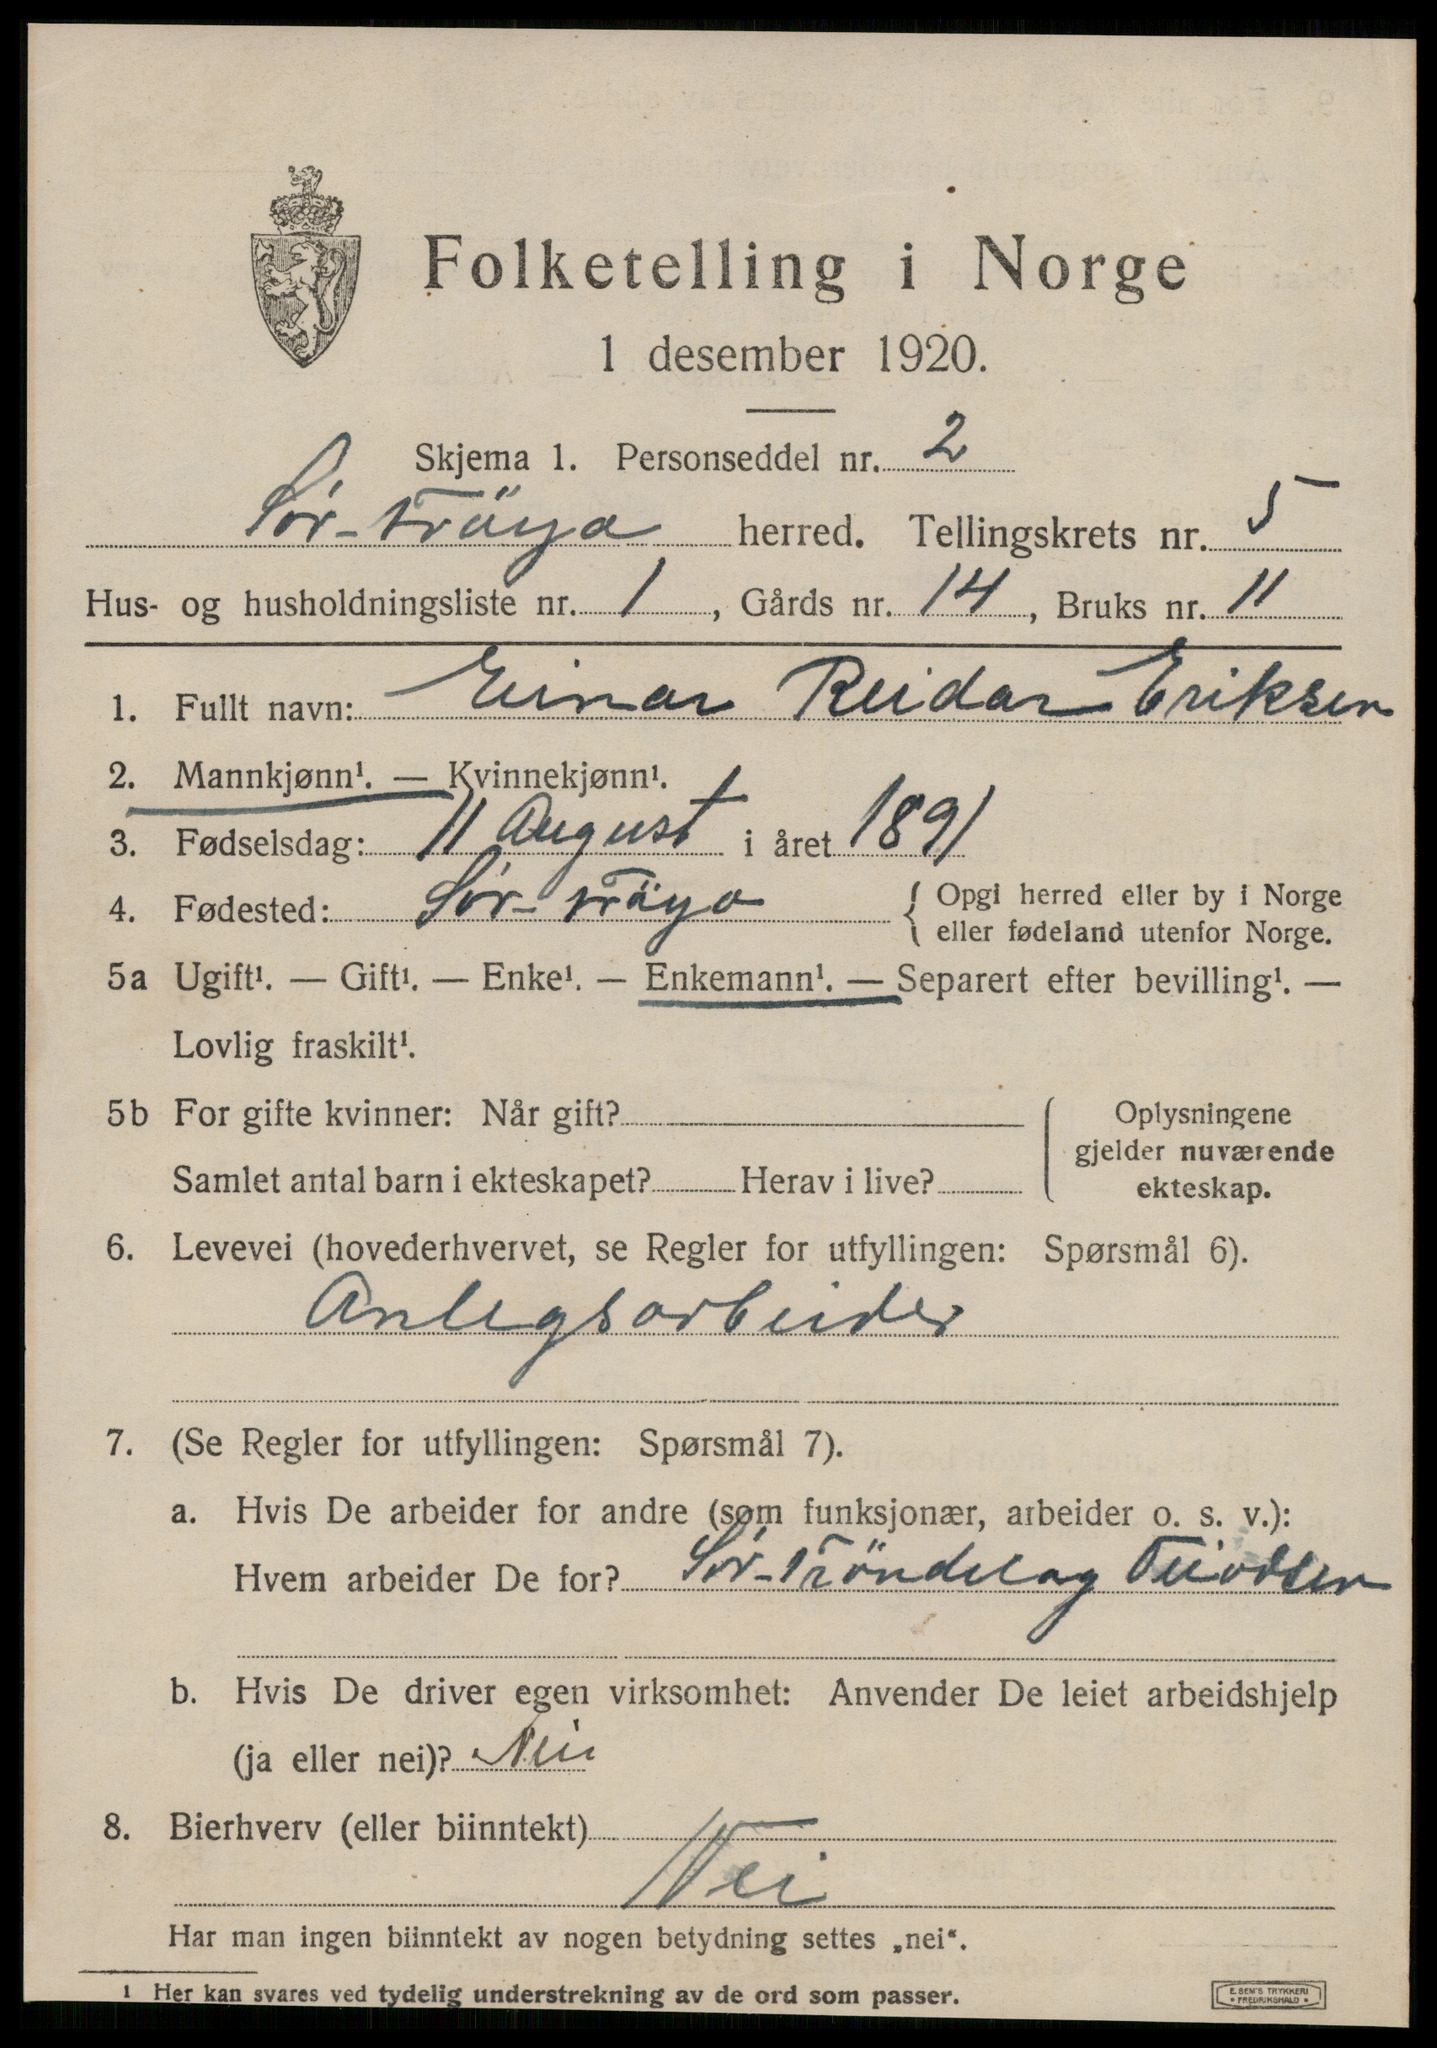 Folketelling i Norge
1 desember 1920.
Skjema 1. Personseddel nr. 2
Sør-Fröya herred. Tellingskrets nr. 5
Hus- og husholdningsliste nr. 1, Gårds nr. 14, Bruks nr. 11
1. Fullt navn: Einar Reidar Eriksen
2. Mannkjønn¹. — Kvinnekjønn¹.
3. Fødselsdag: 11 August i året 1891
4. Fødested: Sør-Fröya { Opgi herred eller by i Norge
eller fødeland utenfor Norge.
5a Ugift¹. — Gift¹. — Enke¹. — Enkemann¹. — Separert efter bevilling¹. —
Lovlig fraskilt¹.
5b For gifte kvinner: Når gift?
Samlet antal barn i ekteskapet? Herav i live?
Oplysningene
gjelder nuværende
ekteskap.
6. Levevei (hovederhvervet, se Regler for utfyllingen: Spørsmål 6).
Anlegsarbeider
7. (Se Regler for utfyllingen: Spørsmål 7).
a. Hvis De arbeider for andre (som funksjonær, arbeider o. s. v.):
Hvem arbeider De for? Sør-Tröndelag
b. Hvis De driver egen virksomhet: Anvender De leiet arbeidshjelp
(ja eller nei)? Nei
8. Bierhverv (eller biinntekt)
Nei
Har man ingen biinntekt av nogen betydning settes „nei“.
¹ Her kan svares ved tydelig understrekning av de ord som passer.
E. SEM'S TRYKKERI
• FREDRIKSHALD •